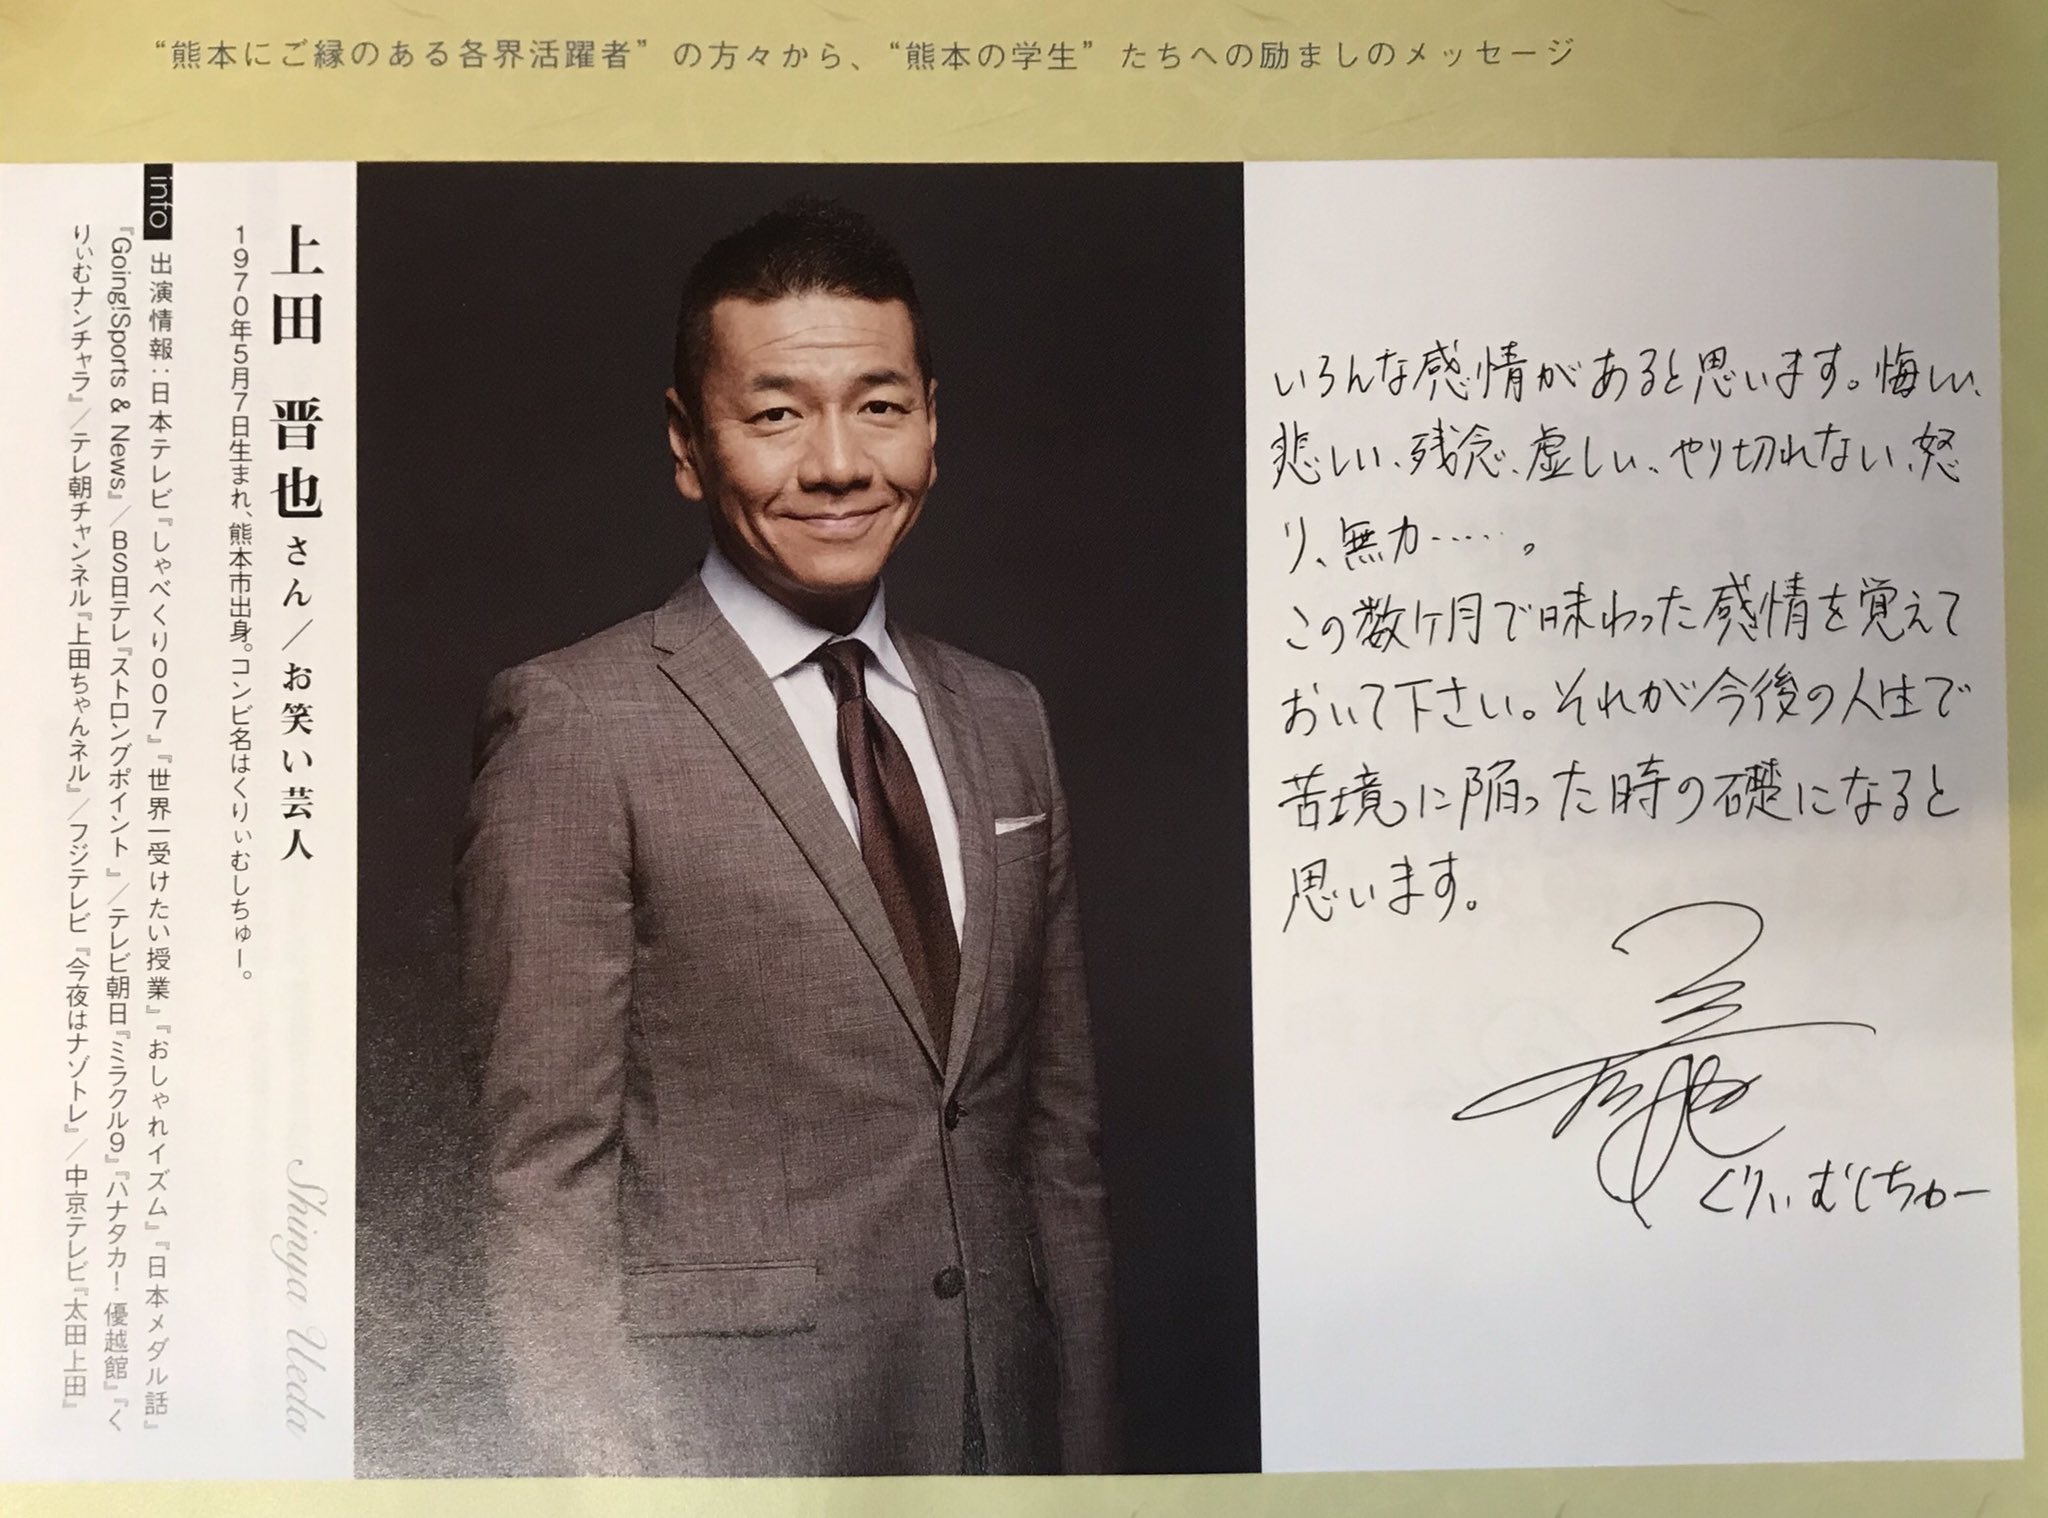 “熊本にご縁のある各界活躍者”の方々から、“熊本の学生”たちへの励ましのメッセージ
いろんな感情があると思います。悔しい、
悲しい、残念、虚しい、やり切れない、怒
り、無力……。
この数ケ月で味わった感情を覚えて
おいて下さい。それが今後の人生で
苦境に陥った時の礎になると
思います。
くりぃむしちゅー
上田 晋也さん/お笑い芸人
1970年5月7日生まれ、熊本市出身。コンビ名はくりぃむしちゅー。
Shinya Ueda
info 出演情報:日本テレビ『しゃべくり007』『世界一受けたい授業』『おしゃれイズム』『日本メダル話』
『Going!Sports & News』/BS日テレ『ストロングポイント』/テレビ朝日『ミラクル9』『ハナタカ!優越館』『く
りぃむナンチャラ』/テレ朝チャンネル『上田ちゃんネル』/フジテレビ『今夜はナゾトレ』/中京テレビ『太田上田』